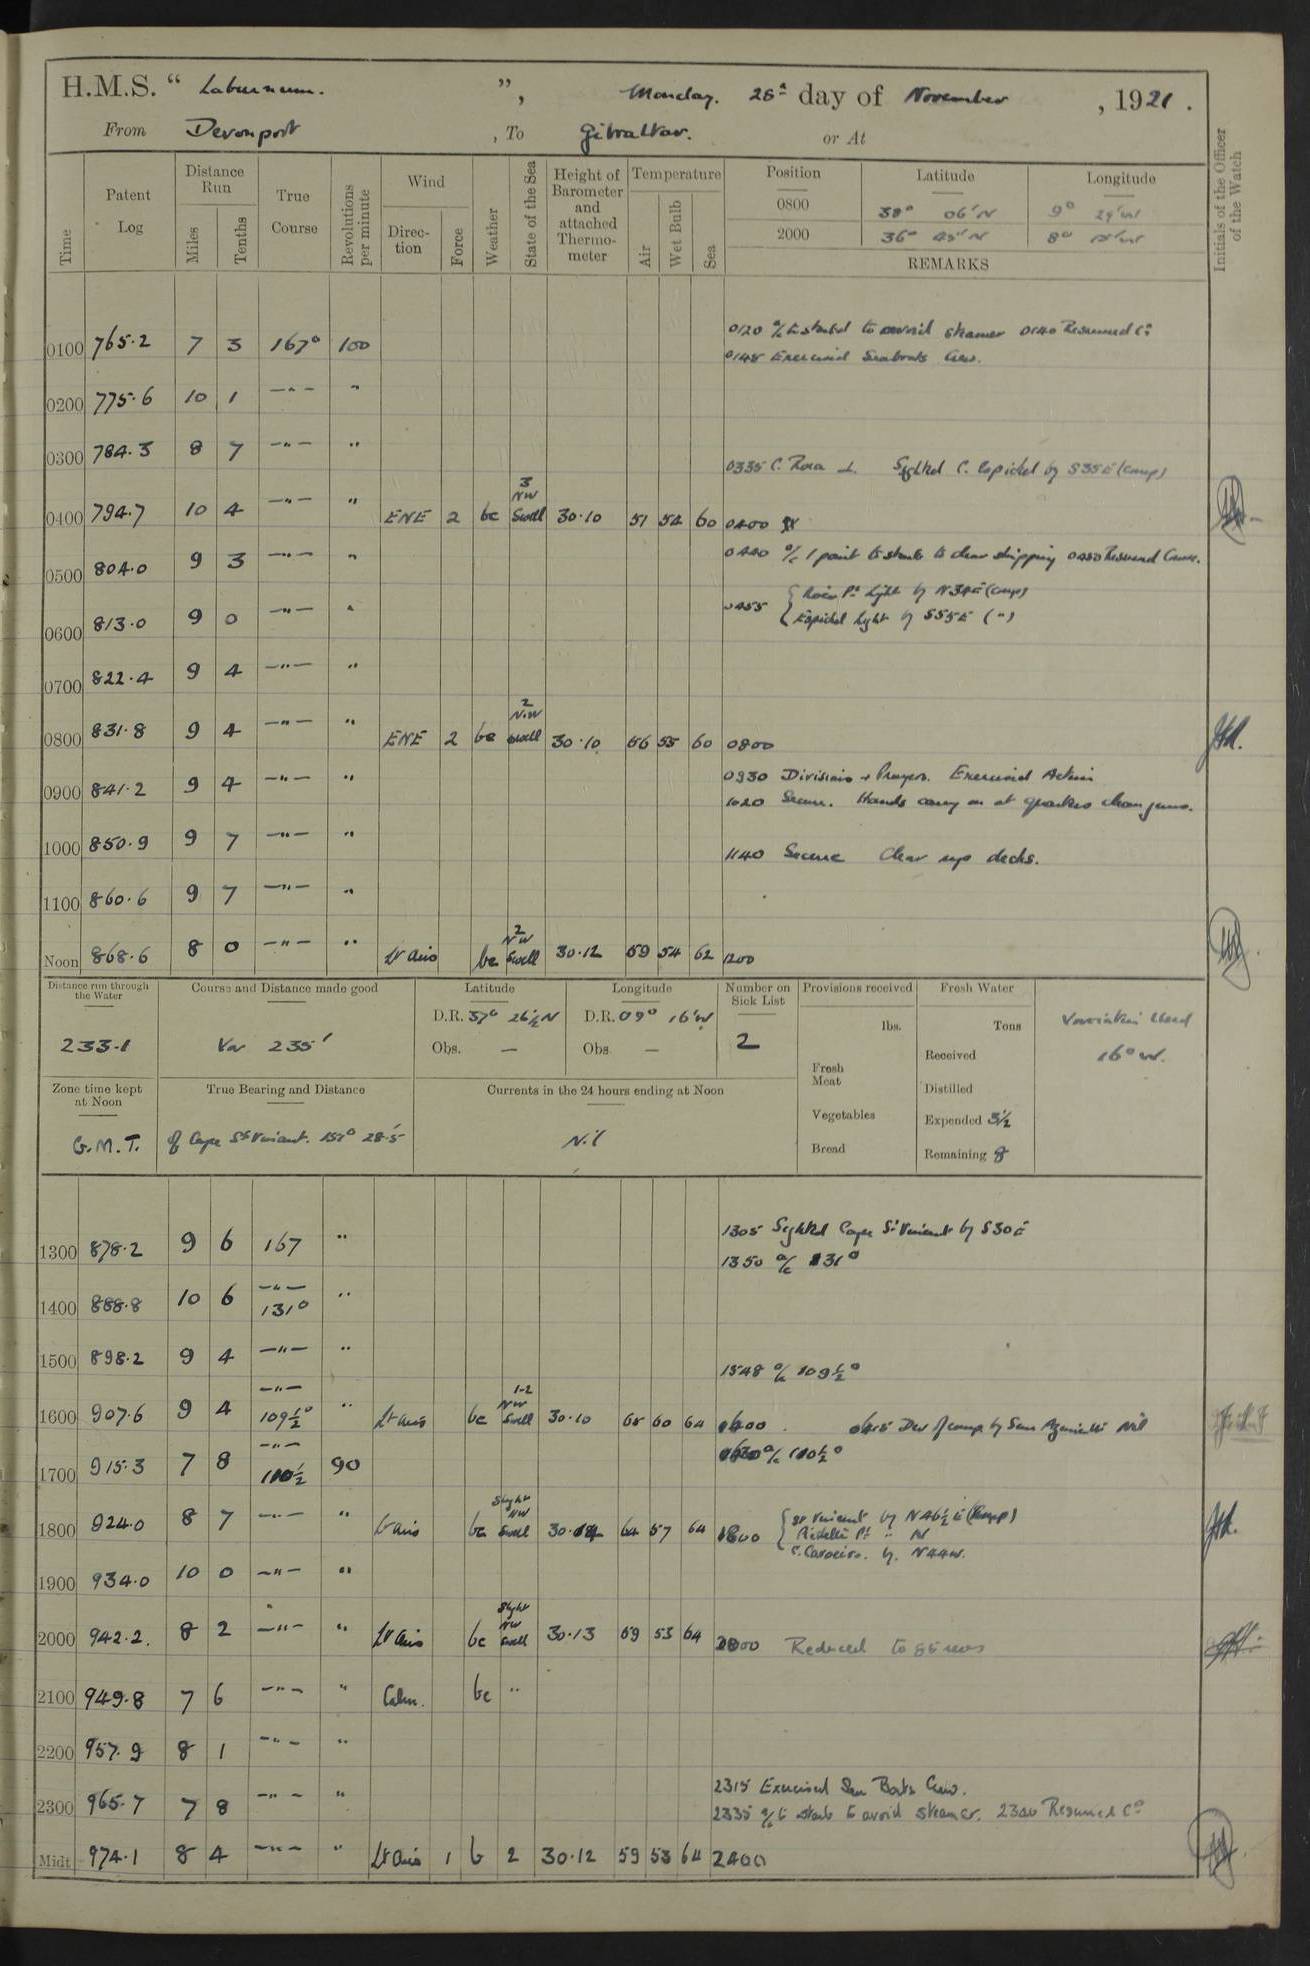 H.M.S. “ Laburnum. ”, Monday. 28th day of November , 1921 .
From Devonport , To Gibraltar. or At
Time
Patent Log
Distance Run
Miles
Tenths
True Course
Revolutions per minute
Wind
Direc-tion
Force
Weather
State of the Sea
Height of Barometer and attached Thermo-meter
Temperature
Air
Wet Bulb
Sea
Position
Latitude
Longitude
Initials of the Officer of the Watch
0800 38° 06' N 9° 29' W
2000 36° 45' N 8°
REMARKS
0120 a/c to starbd to avoid steamer 0140 Resumed Co
0100 765.2 7 3 167° 100
0145 Exercised Seaboats Crew.
0200 775.6 10 1 —"— "
0300 784.3 8 7 —"— "
0335 C. Roca Sighted C. Espichel by S35E (comp)
0400 794.7 10 4 —"— " ENE 2 bc 3 NW Swell 30.10 51 54 60 0400
0440 a/c 1 point to starb to clear shipping 0450 Resumed Course.
0500 804.0 9 3 —"— "
0455 { Roca Pt light by N34E (comp)
Espichel light by S55E (")
0600 813.0 9 0 —"— "
0700 822.4 9 4 —"— "
0800 831.8 9 4 —"— " ENE 2 bc 2 N.W swell 30.10 56 55 60 0800
0930 Divisions + Prayers. Exercised Action
0900 841.2 9 4 —"— "
1020 Secure. Hands carry on at quarters clean guns.
1000 850.9 9 7 —"— "
1140 Secure Clear up decks.
1100 860.6 9 7 —"— "
Noon 868.6 8 0 —"— " Lt airs bc 2 NW Swell 30.12 59 54 62 1200
Distance run through the Water
233.1
Course and Distance made good
Var 235'
Latitude
D.R. 37° 26½ N
Obs. —
Longitude
D.R. 09° 16' W
Obs —
Number on Sick List
2
Provisions received
lbs.
Fresh Meat
Vegetables
Bread
Fresh Water
Tons
Received
Distilled
Expended 3½
Remaining 8
Variation Used
16° W.
Zone time kept at Noon
G.M.T.
True Bearing and Distance
of Cape St Vincent. 157° 28.5'
Currents in the 24 hours ending at Noon
Nil
1305 Sighted Cape St Vincent by S30E
1300 878.2 9 6 167 "
1350 a/c 131°
1400 888.8 10 6 —"— 131° "
1500 898.2 9 4 —"— "
1548 a/c 109½°
1600 907.6 9 4 —"— 109½° " Lt airs bc 1-2 NW Swell 30.10 65 60 64 1600 1615 Dev of comp by Sun Azimuth Nil
1630 a/c 100½°
1700 915.3 7 8 —"— 100½ 90
1800 924.0 8 7 —"— " Lt airs bc Slight NW Swell 30.12 64 57 64 1800 { St Vincent by N46½E (Comp)
Piedade Pt " N
C. Carvoeiro. by. N44W.
1900 934.0 10 0 —"— "
2000 942.2. 8 2 —"— " Lt airs bc Slight NW Swell 30.13 59 53 64 2000 Reduced to 85 revs
2100 949.8 7 6 —"— " Calm. bc "
2200 957.9 8 1 —"— "
2315 Exercised Sea Boats Crew.
2300 965.7 7 8 —"— "
2335 a/c to starb to avoid steamer. 2340 Resumed Co
Midt 974.1 8 4 —"— " Lt airs 1 b 2 30.12 59 53 64 2400